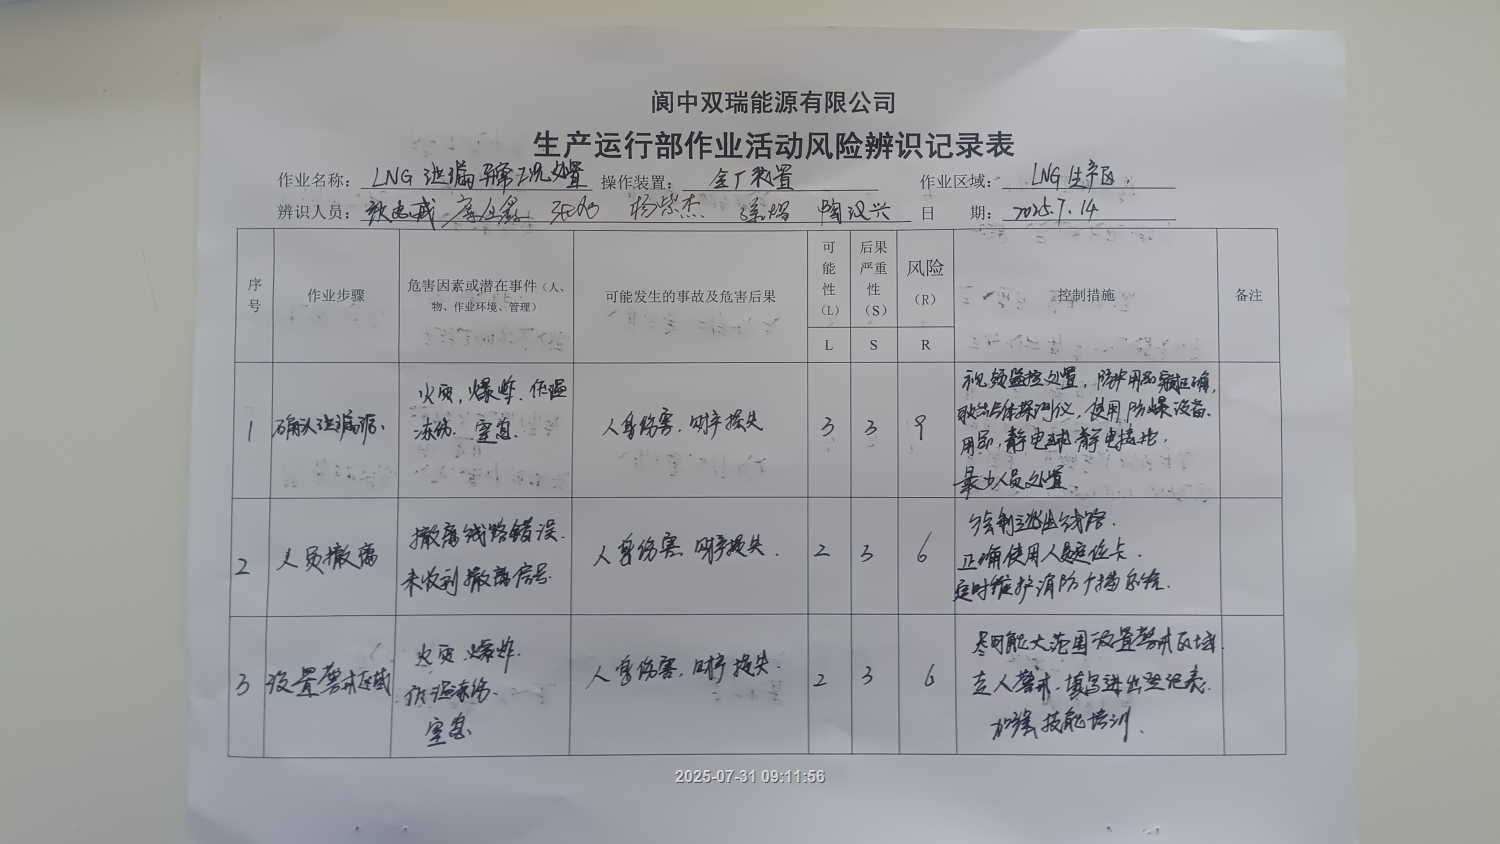 阆中双瑞能源有限公司
生产运行部作业活动风险辨识记录表
作业名称: LNG泄漏异常工况处置 操作装置: 全厂装置 作业区域: LNG生产区
辨识人员: 杨紫杰 陶汉兴 日期: 2025.7.14
序号 作业步骤 危害因素或潜在事件(人、物、作业环境、管理) 可能发生的事故及危害后果 可能性(L) 后果严重性(S) 风险(R) 控制措施 备注
L S R
1 确认泄漏源、 火灾,爆炸.低温冻伤. 窒息. 人身伤害.财产损失 3 3 9 视频监控处置,防护用品穿戴正确,
气体探测仪,使用防爆设备、
用品,静电球静电接地,
最少人员处置.
2 人员撤离 撤离线路错误.未收到撤离信号. 人身伤害.财产损失. 2 3 6 绘制逃生线路.
正确使用人员定位卡.
定时维护消防广播系统.
3 设置警戒区域 火灾.爆炸.低温冻伤.窒息. 人身伤害.财产损失. 2 3 6 尽可能大范围设置警戒区域.
专人警戒.填写进出登记表.
加强技能培训.
2025-07-31 09:11:56